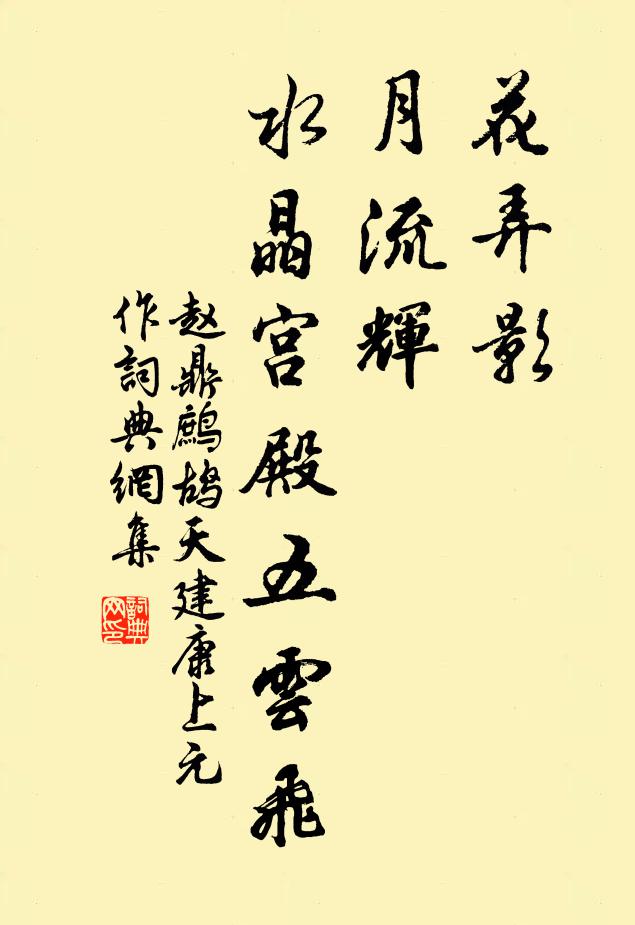 花弄影
月流輝
水晶宫殿五雲飛
赵鼎鷓鴣天建康上元
作詞典網集
詞典网印